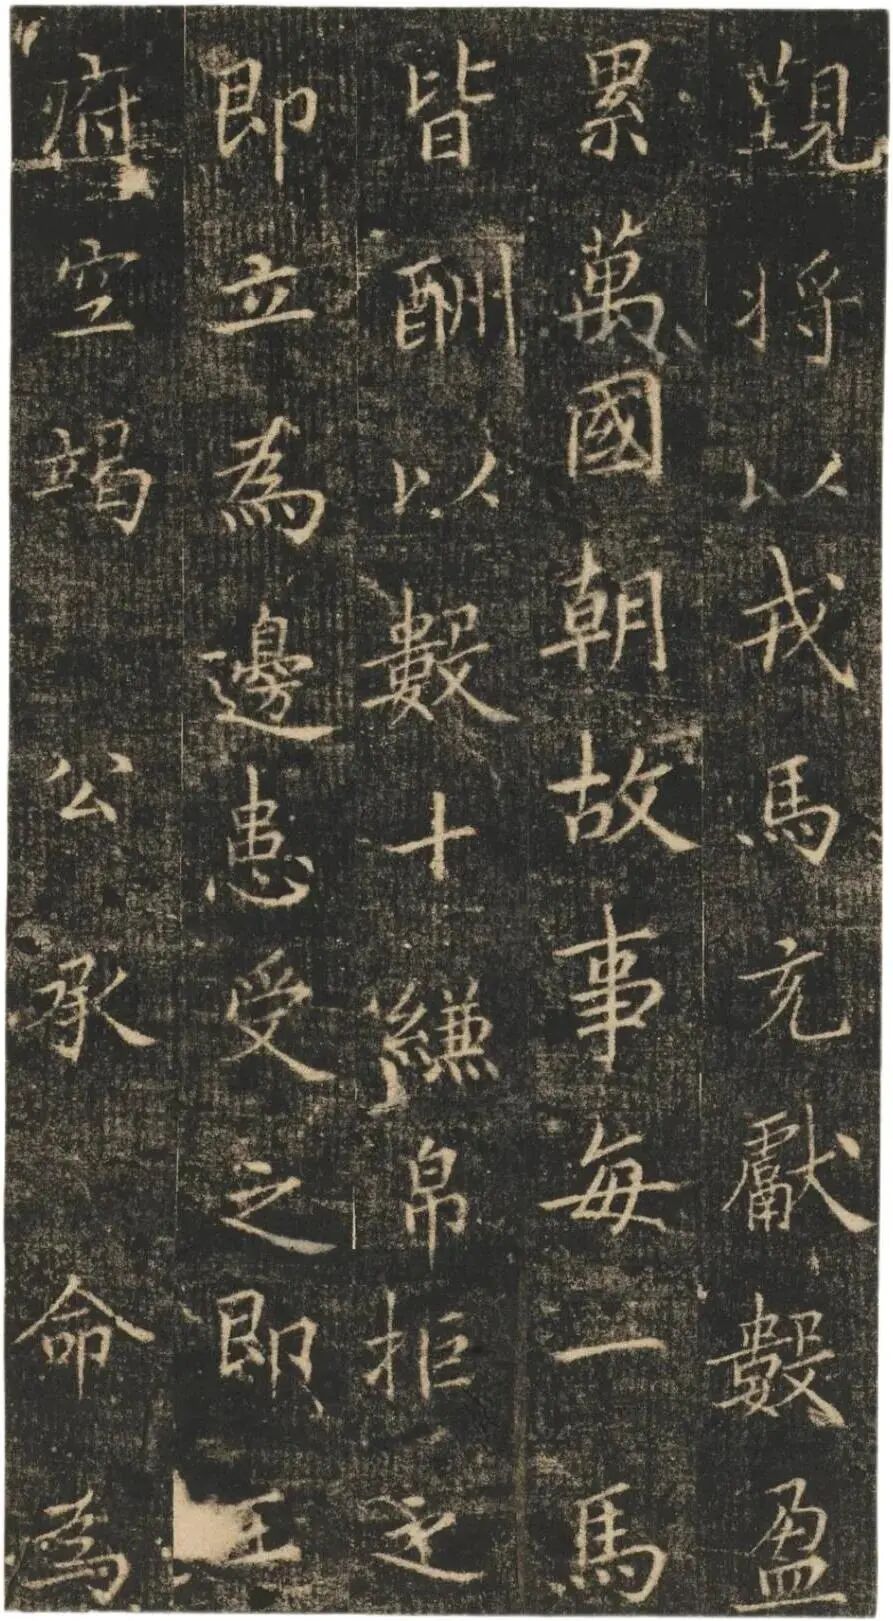 觐将以戎馬充獻數盈
累萬國朝故事每一馬
皆酬以數十縑帛拒之
即立為邊患受之即王
府空竭公承命為